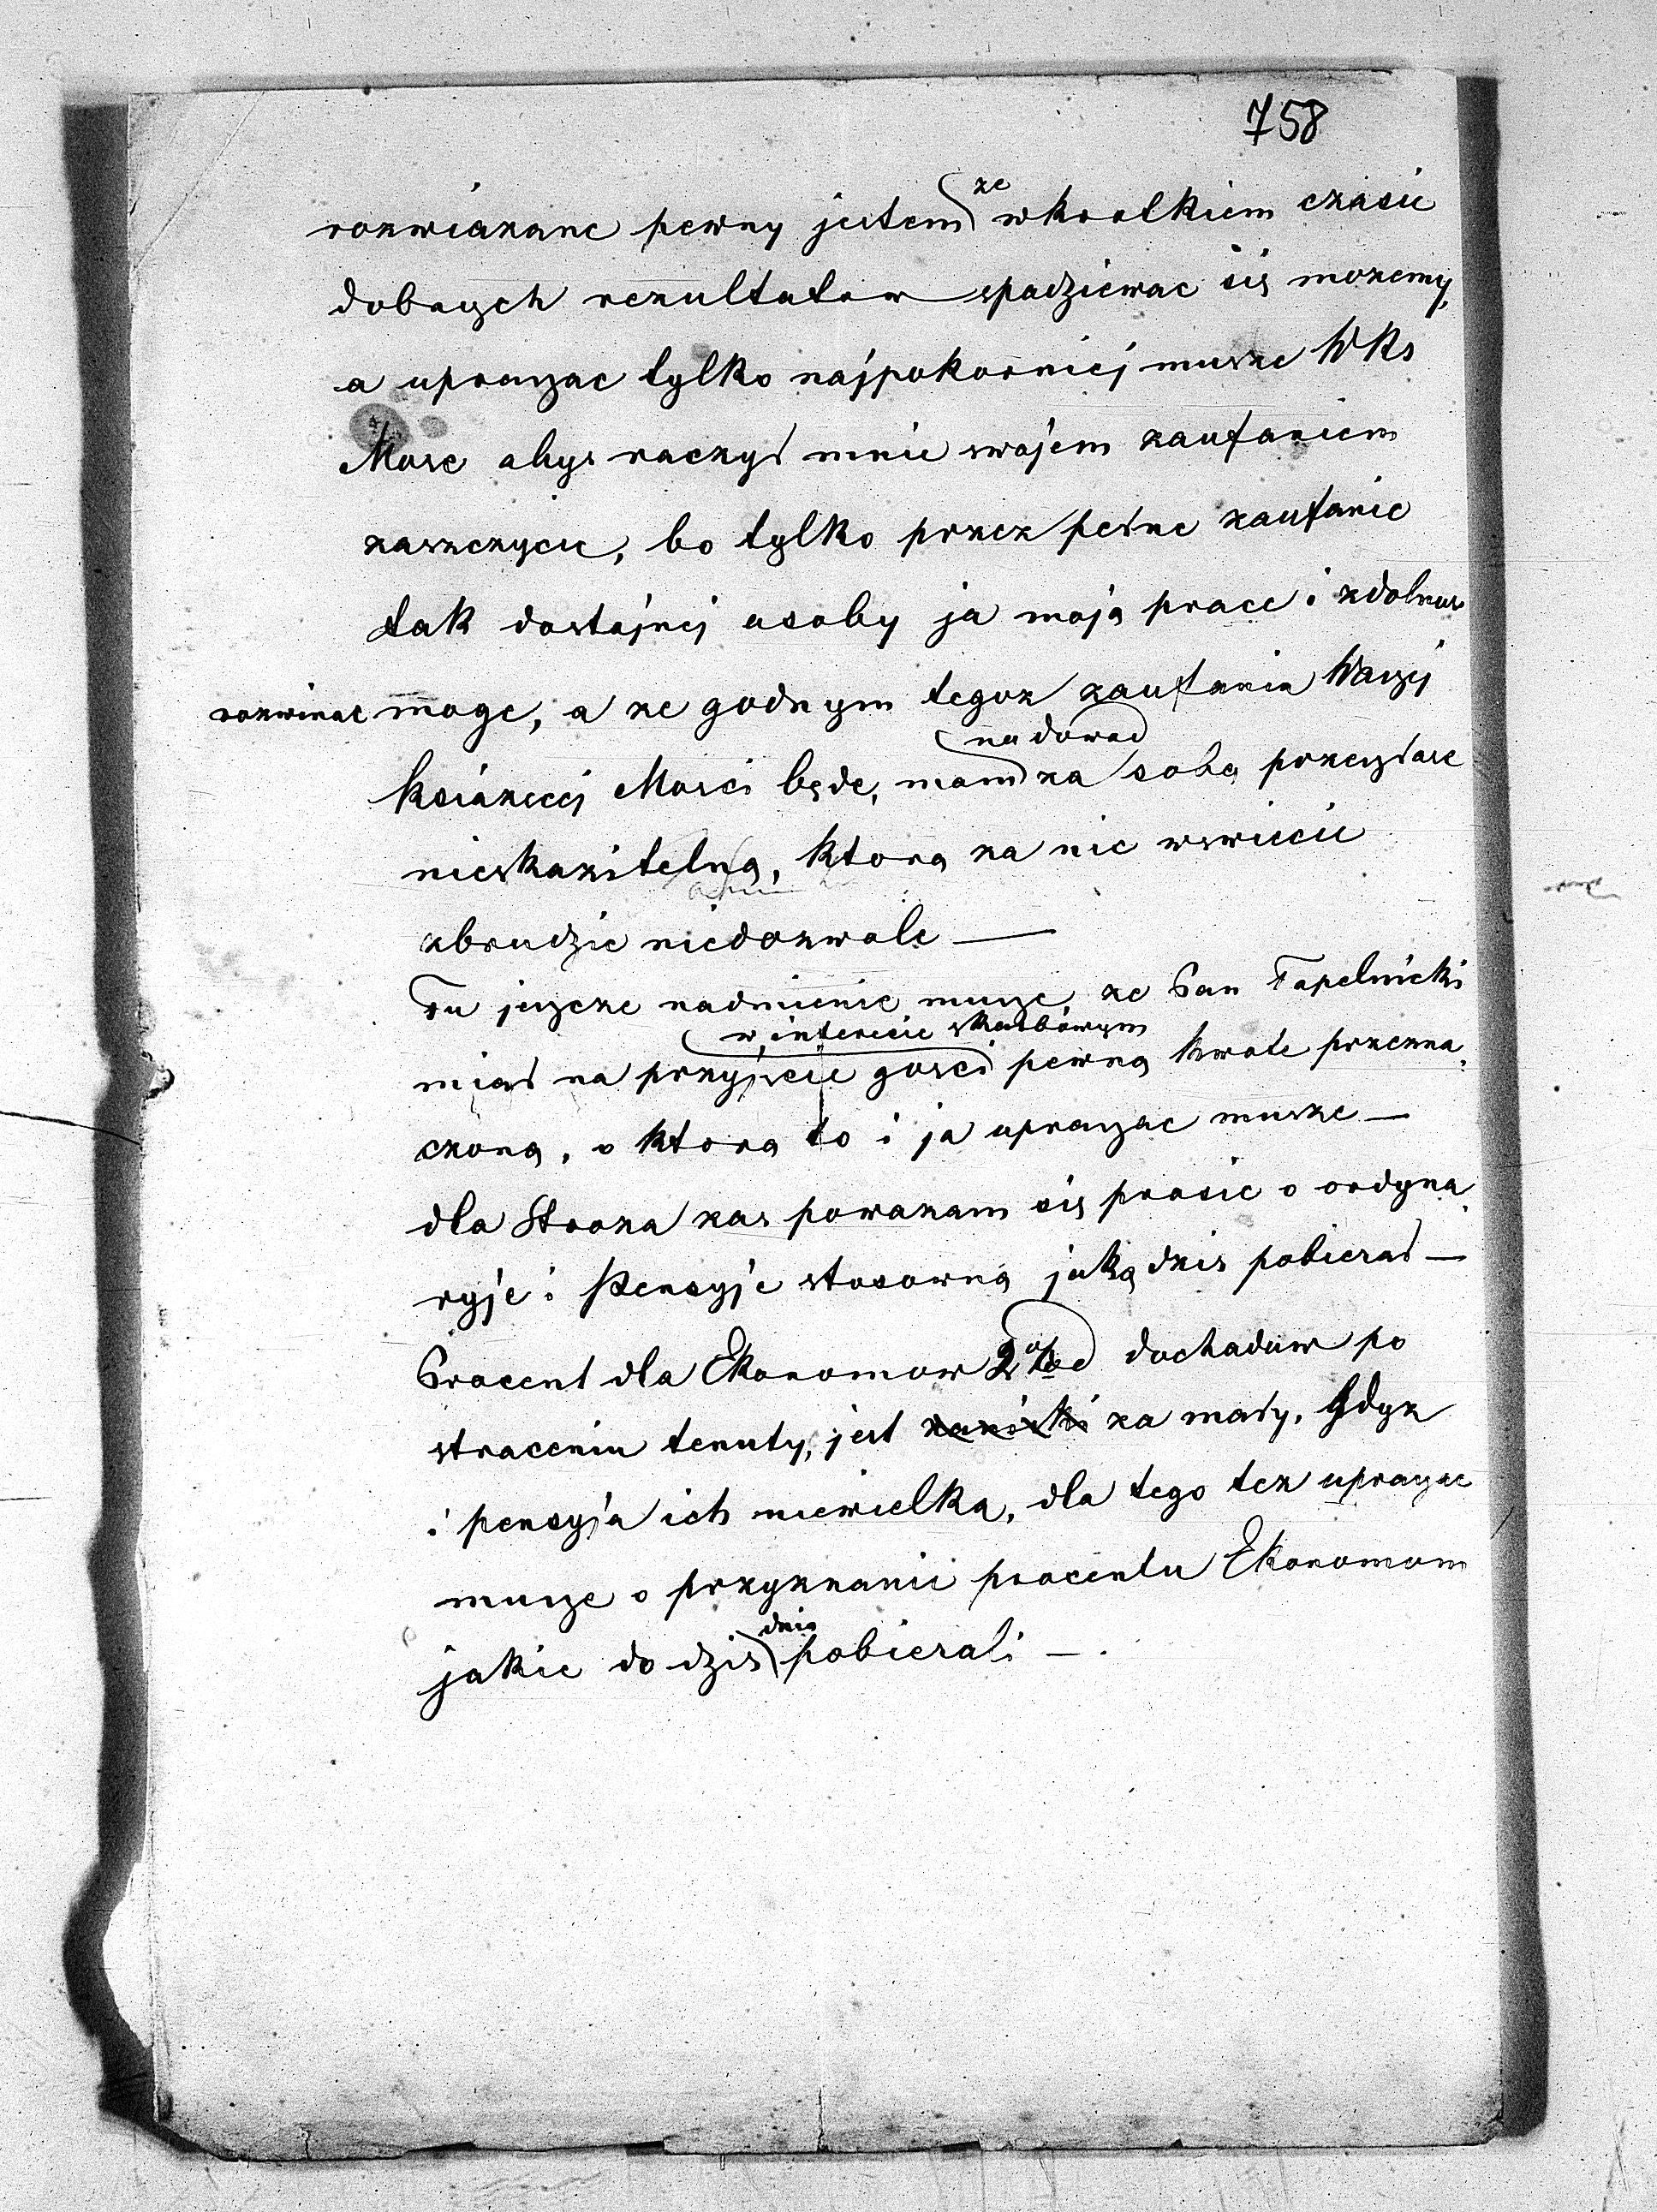 758
rozwiazane pewny jestem że wkrotkiem czasie
dobrych rezultatow spadziewac się mozemy,
a upraszac tylko najpokorniej musze WKs
Mosc abys raczył mnie swojem zaufaniem
zaszczycic, bo tylko przez pełne zaufanie
tak dostajnej osoby ja moja prace i zdolnos
rozwinac moge, a ze godnym tegoz zaufania Waszej
ksiazecej Mosci będe, mam na dowod za sobą przeszłosc
nieskazitelną, ktorą za nic wswiecie
zbrudzic niedozwole —
Tu jeszcze nadmienic musze, ze Pan Tapelnicki
miał na przyjecie gosci w interesie skarbowym pewną kwote przezna
czoną, o ktorą to i ja upraszac musze —
dla Stroza zas powazam się prosic o ordyna
ryje i Pensyje stosowną jaką dzis pobierał —
Procent dla Ekonomow 2% od dochadow po
straceniu tenuty, jest za mały, Gdyz
i pensyja ich niewielka, dla tego tez upraszac
musze o przyznanie procentu Ekonomom
jakie do dzis dnia pobierali —.